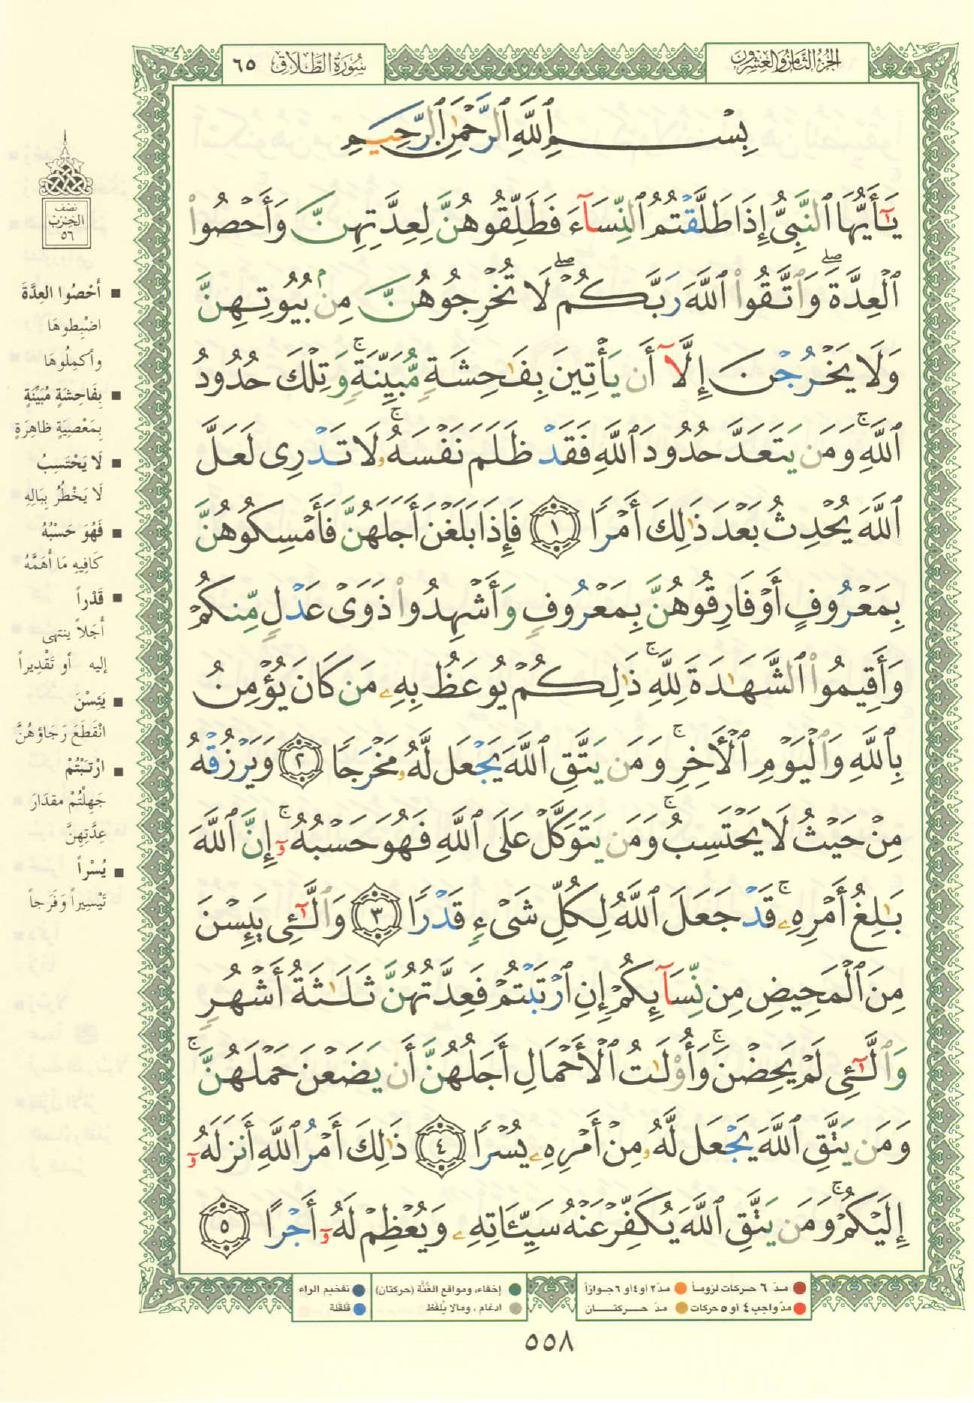 الجزء الثامن والعشرون
سُورَةُ الطَّلَاقِ ٦٥
بِسْمِ ٱللَّهِ ٱلرَّحْمَٰنِ ٱلرَّحِيمِ
يَٰٓأَيُّهَا ٱلنَّبِىُّ إِذَا طَلَّقْتُمُ ٱلنِّسَآءَ فَطَلِّقُوهُنَّ لِعِدَّتِهِنَّ وَأَحْصُوا۟
ٱلْعِدَّةَ ۖ وَٱتَّقُوا۟ ٱللَّهَ رَبَّكُمْ ۖ لَا تُخْرِجُوهُنَّ مِنۢ بُيُوتِهِنَّ
وَلَا يَخْرُجْنَ إِلَّآ أَن يَأْتِينَ بِفَٰحِشَةٍ مُّبَيِّنَةٍ ۚ وَتِلْكَ حُدُودُ
ٱللَّهِ ۚ وَمَن يَتَعَدَّ حُدُودَ ٱللَّهِ فَقَدْ ظَلَمَ نَفْسَهُۥ ۚ لَا تَدْرِى لَعَلَّ
ٱللَّهَ يُحْدِثُ بَعْدَ ذَٰلِكَ أَمْرًا ١ فَإِذَا بَلَغْنَ أَجَلَهُنَّ فَأَمْسِكُوهُنَّ
بِمَعْرُوفٍ أَوْ فَارِقُوهُنَّ بِمَعْرُوفٍ وَأَشْهِدُوا۟ ذَوَىْ عَدْلٍ مِّنكُمْ
وَأَقِيمُوا۟ ٱلشَّهَٰدَةَ لِلَّهِ ۚ ذَٰلِكُمْ يُوعَظُ بِهِۦ مَن كَانَ يُؤْمِنُ
بِٱللَّهِ وَٱلْيَوْمِ ٱلْءَاخِرِ ۚ وَمَن يَتَّقِ ٱللَّهَ يَجْعَل لَّهُۥ مَخْرَجًا ٢ وَيَرْزُقْهُ
مِنْ حَيْثُ لَا يَحْتَسِبُ ۚ وَمَن يَتَوَكَّلْ عَلَى ٱللَّهِ فَهُوَ حَسْبُهُۥٓ ۚ إِنَّ ٱللَّهَ
بَٰلِغُ أَمْرِهِۦ ۚ قَدْ جَعَلَ ٱللَّهُ لِكُلِّ شَىْءٍ قَدْرًا ٣ وَٱلَّٰٓـِٔى يَئِسْنَ
مِنَ ٱلْمَحِيضِ مِن نِّسَآئِكُمْ إِنِ ٱرْتَبْتُمْ فَعِدَّتُهُنَّ ثَلَٰثَةُ أَشْهُرٍ
وَٱلَّٰٓـِٔى لَمْ يَحِضْنَ ۚ وَأُو۟لَٰتُ ٱلْأَحْمَالِ أَجَلُهُنَّ أَن يَضَعْنَ حَمْلَهُنَّ ۚ
وَمَن يَتَّقِ ٱللَّهَ يَجْعَل لَّهُۥ مِنْ أَمْرِهِۦ يُسْرًا ٤ ذَٰلِكَ أَمْرُ ٱللَّهِ أَنزَلَهُۥٓ
إِلَيْكُمْ ۚ وَمَن يَتَّقِ ٱللَّهَ يُكَفِّرْ عَنْهُ سَيِّـَٔاتِهِۦ وَيُعْظِمْ لَهُۥٓ أَجْرًا ٥
نصف
الحزب
٥٦
■ أَحْصُوا العِدَّةَ
اضْبِطوهَا
وأكمِلُوهَا
■ بِفَاحِشَةٍ مُبَيِّنَةٍ
بِمَعْصِيَةٍ ظاهِرَةٍ
■ لَا يَحْتَسِبُ
لَا يَخْطُرُ بِبَالِهِ
■ فَهُوَ حَسْبُهُ
كَافِيهِ مَا أَهَمَّهُ
■ قَدْراً
أَجَلاً ينتهي
إليه أو تَقْدِيراً
■ يَئِسْنَ
انْقَطَعَ رَجَاؤهُنَّ
■ ارْتَبْتُمْ
جَهِلْتُمْ مقدَارَ
عِدَّتِهِنَّ
■ يُسْراً
تَيْسِيراً وَفَرَجاً
مدّ ٦ حركات لزوماً مدّ ٢ أو ٤ أو ٦ جوازاً
مدّ واجب ٤ أو ٥ حركات مدّ حركتان
إخفاء، ومواقع الغُنَّة (حركتان) تفخيم الراء
ادغام ، ومالا يُلفَظ قلقلة
٥٥٨